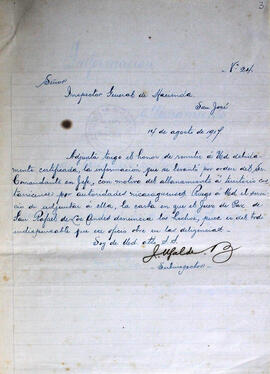 3
Nº 24.
Señor
Inspector General de Hacienda
San José
14 de agosto de 1917
Adjunta tengo el honor de remitir á Ud debida-
mente certificada, la información que se levantó por orden del Sr.
Comandante en Jefe, con motivo del allanamiento á territorio cos-
tarricense por autoridades nicaragüenses. Ruego á Ud el
de adjuntar á ella, la carta en que el Juez de Paz de
San Rafael de Los Andes denuncia los hechos, pues es del todo
indispensable que ese oficio obre en las diligencias.
Soy de Ud. atto. S.S.